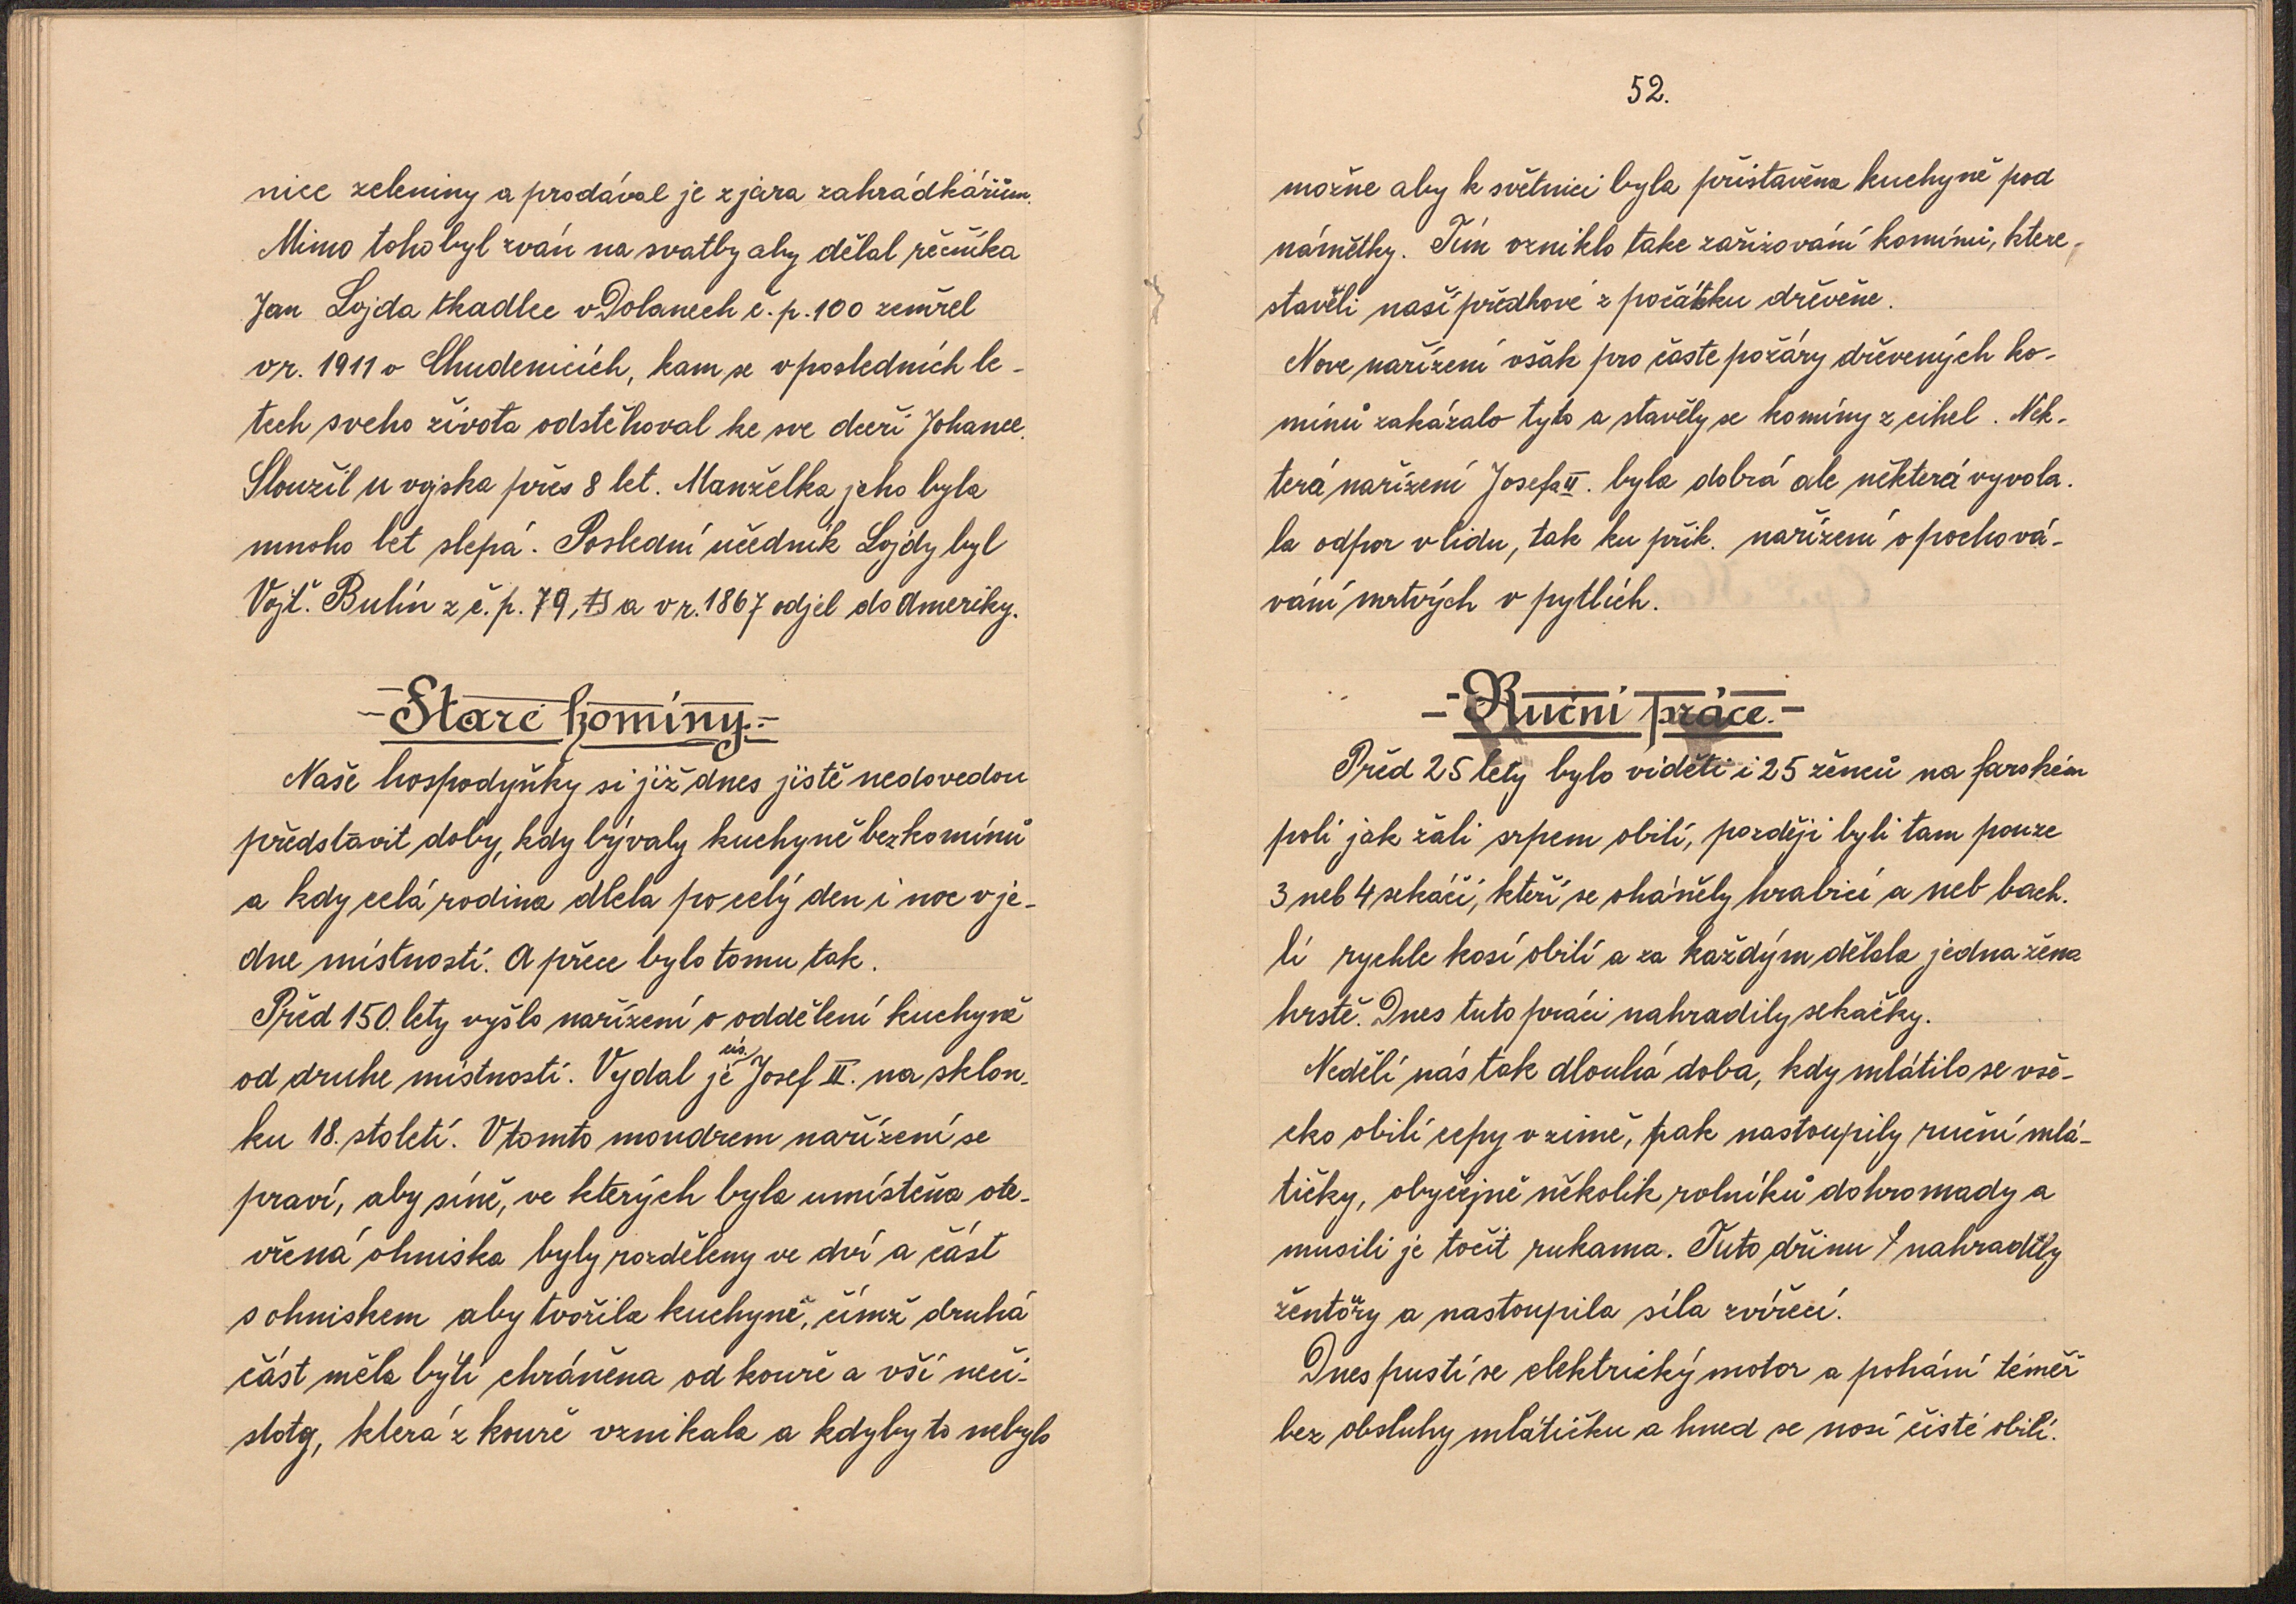 nice zeleniny a prodával je z jara zahrádkářům.
Mimo toho byl zván na svatby aby dělal řečníka
Jan Lojda tkadlec v Dolanech č. p. 100 zemřel
v r. 1911 v Chudenicích, kam se v posledních le-
tech sveho života odstěhoval ke sve dceři Johance.
Sloužil u vojska přes 8 let. Manželka jeho byla
mnoho let slepá. Poslední učedník Lojdy byl
Vojt. Bulín z č. p. 79, a v r. 1867 odjel do Ameriky.
- Staré komíny. -
Naše hospodyňky si již dnes jistě nedovedou
představit doby, kdy bývaly kuchyně bez komínů
a kdy celá rodina dlela po celý den i noc v je-
dne místnosti. A přece bylo tomu tak.
Před 150 lety vyšlo nařízení o oddělení kuchyně
od druhe místnosti. Vydal je cís. Josef II. na sklon-
ku 18. století. V tomto moudrem nařízení se
praví, aby síně, ve kterých byla umístěna ote-
vřená ohniska byly rozděleny ve dví a část
s ohniskem aby tvořila kuchyně, čímž druhá
část měla býti chráněna od kouře a vší neči-
stoty, která z kouře vznikala a kdyby to nebylo
52.
možne aby k světnici byla přistavěna kuchyně pod
námětky. Tím vzniklo take zařizování komínů, ktere
stavěli naší předkové z počátku dřevěne.
Nove nařízení však pro časte požáry dřevených ko-
mínů zakázalo tyto a stavěly se komíny z cihel. Něk-
terá nařízení Josefa II. byla dobrá ale některá vyvola-
la odpor v lidu, tak ku přik. nařízení o pochová-
vání mrtvých v pytlích.
- Ruční práce. -
Před 25 lety bylo viděti i 25 ženců na farském
poli jak žali srpem obilí, později byli tam pouze
3 neb 4 sekáči, kteří se oháněly hrabicí a neb bach-
lí rychle kosí obilí a za každým dělala jedna žena
hrstě. Dnes tuto práci nahradily sekačky.
Nedělí nás tak dlouhá doba, kdy mlátilo se vše-
cko obilí cepy v zimě, pak nastoupily ruční mlá-
tičky, obyčejně několik rolníků dohromady a
musili je točit rukama. Tuto dřinu nahradily
žentoury a nastoupila síla zvířecí.
Dnes pustí se elektrický motor a pohání téměř
bez obsluhy mlátičku a hned se nosí čisté obilí.